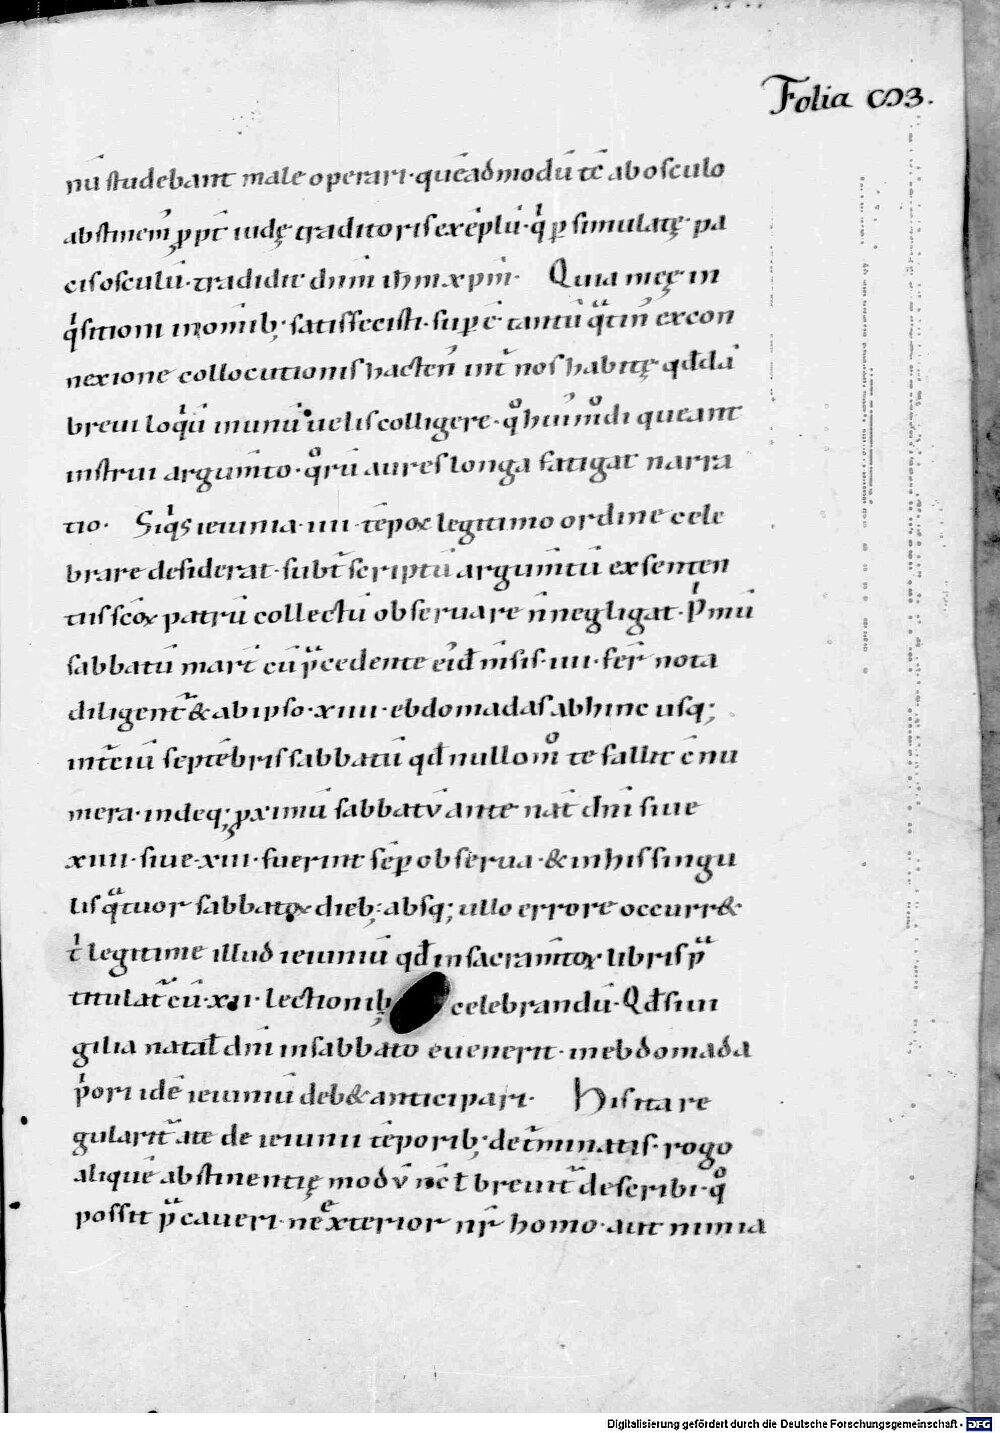 Folia
nū studebant male operari · quēadmodū tc̄ ab osculo
abstinem̄ ꝓpt̄ iudę traditoris exēplū · qͥ ꝑ simulatę pa
cis osculū · tradidit dn̄m ih̄m xp̄m · Quia meę in
qͥsitioni in om̄ib; satisfecisti · suꝑ ē tantū qͣtin̄ ex con
nexione collocutionis hacten̄ int̄ nos habitę qđdā
breui loqͥū in unū uelis colligere · qͦ hui᷒mͦdi queant
instrui argum̄to · qͦrū aures longa fatigat narra
tio · Siqͥs ieiunia · iiii · tēpoꝝ legitimo ordine cele
brare desiderat · subt̄scriptū argum̄tū ex senten
tiis sc̄oꝝ patrū collectū obseruare n̄ negligat · Pͥmū
sabbatū mart̄ cū pͣcedente eiđ m̄sis · iiii · fer̄ nota
diligent̄ & ab ipso · xiiii · ebdomadas abhinc usq;
int̄ciū septēbris sabbatū qđ nullo mͦ te fallit ēnu
mera · indeq; ꝓximū sabbatv̄ ante nat̄ dn̄i siue
xiiii · siue · xiii · fuerint sēꝑ obserua · & in his singu
lis qͣtuor sabbatoꝝ dieb; absq; ullo errore occurr&
tͥ legitime illud ieiuniū qđ in sacram̄toꝝ libris pͣ
titulat᷒ cū · xii · lectionib; celebrandū · Qđ si ui
gilia natal̄ dn̄i in sabbato euenerit · in ebdomada
pͥori idē ieiuniū deb& anticipari · His ita re
gularit̄ a te de ieiunii tēporib; det̄minatis · rogo
aliquē abstinentię modv̄ nc̄ t̄ breuit̄ describi · qͦ
possit pͣcaueri · ne exterior nr̄ homo · aut nimia
Digitalisierung gefördert durch die Deutsche Forschungsgemeinschaft - DFG